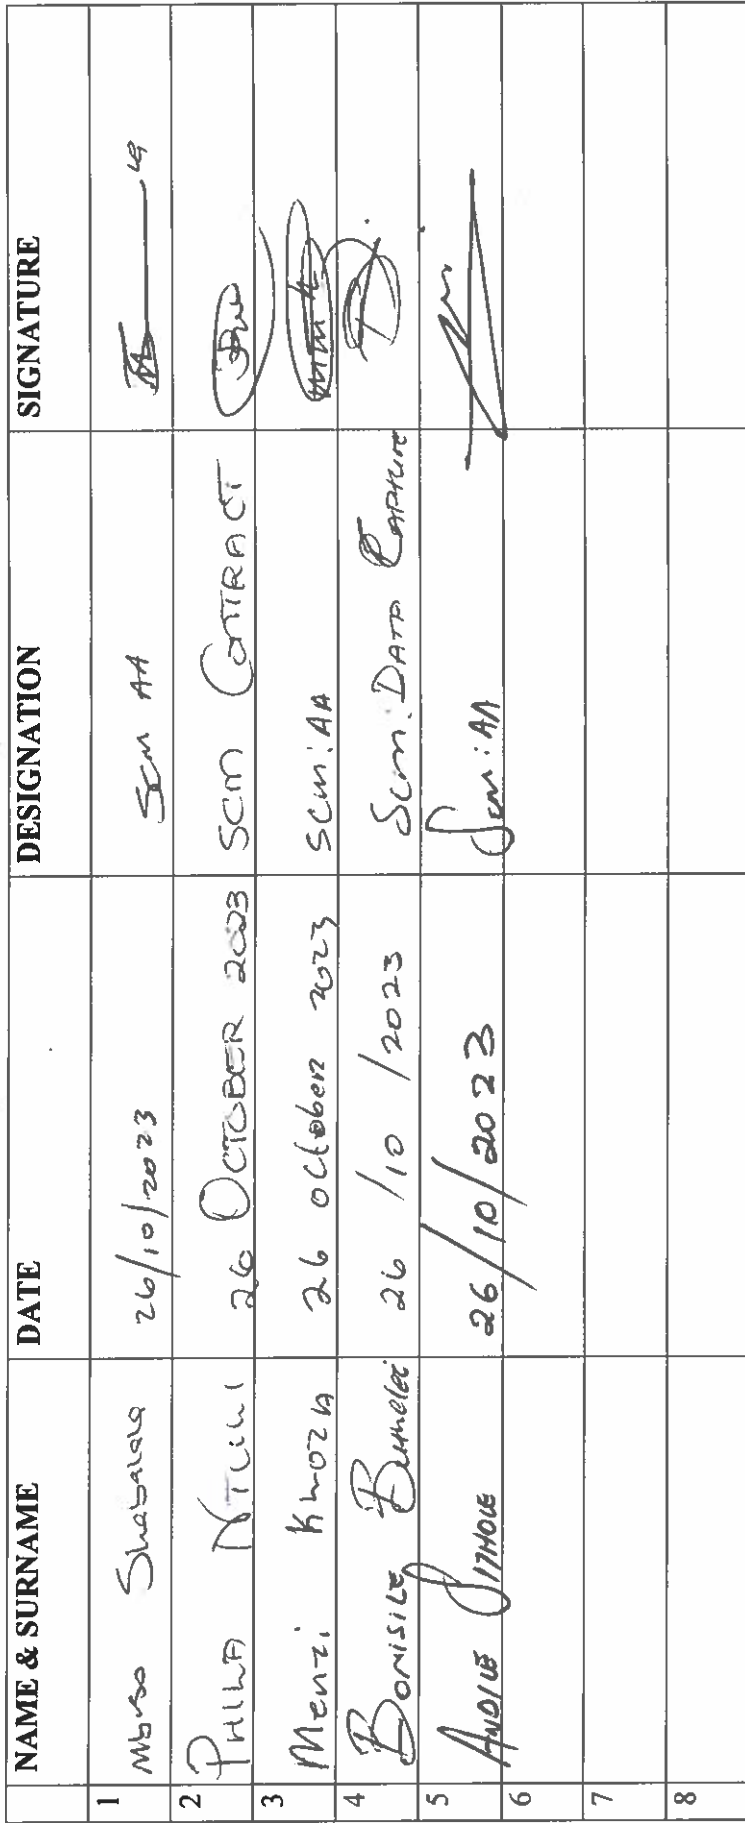 NAME & SURNAME DATE DESIGNATION SIGNATURE
1 Mbuso Shabalala 26/10/2023 SCM AA
2 PHILA NTULI 26 OCTOBER 2023 SCM CONTRACT
3 Menzi KHOZA 26 October 2023 SCM: AA
4 BONISILE BUTHELEZI 26/10/2023 SCM: DATA CAPTURE
5 ANDILE SITHOLE 26/10/2023 SCM: AA
6
7
8